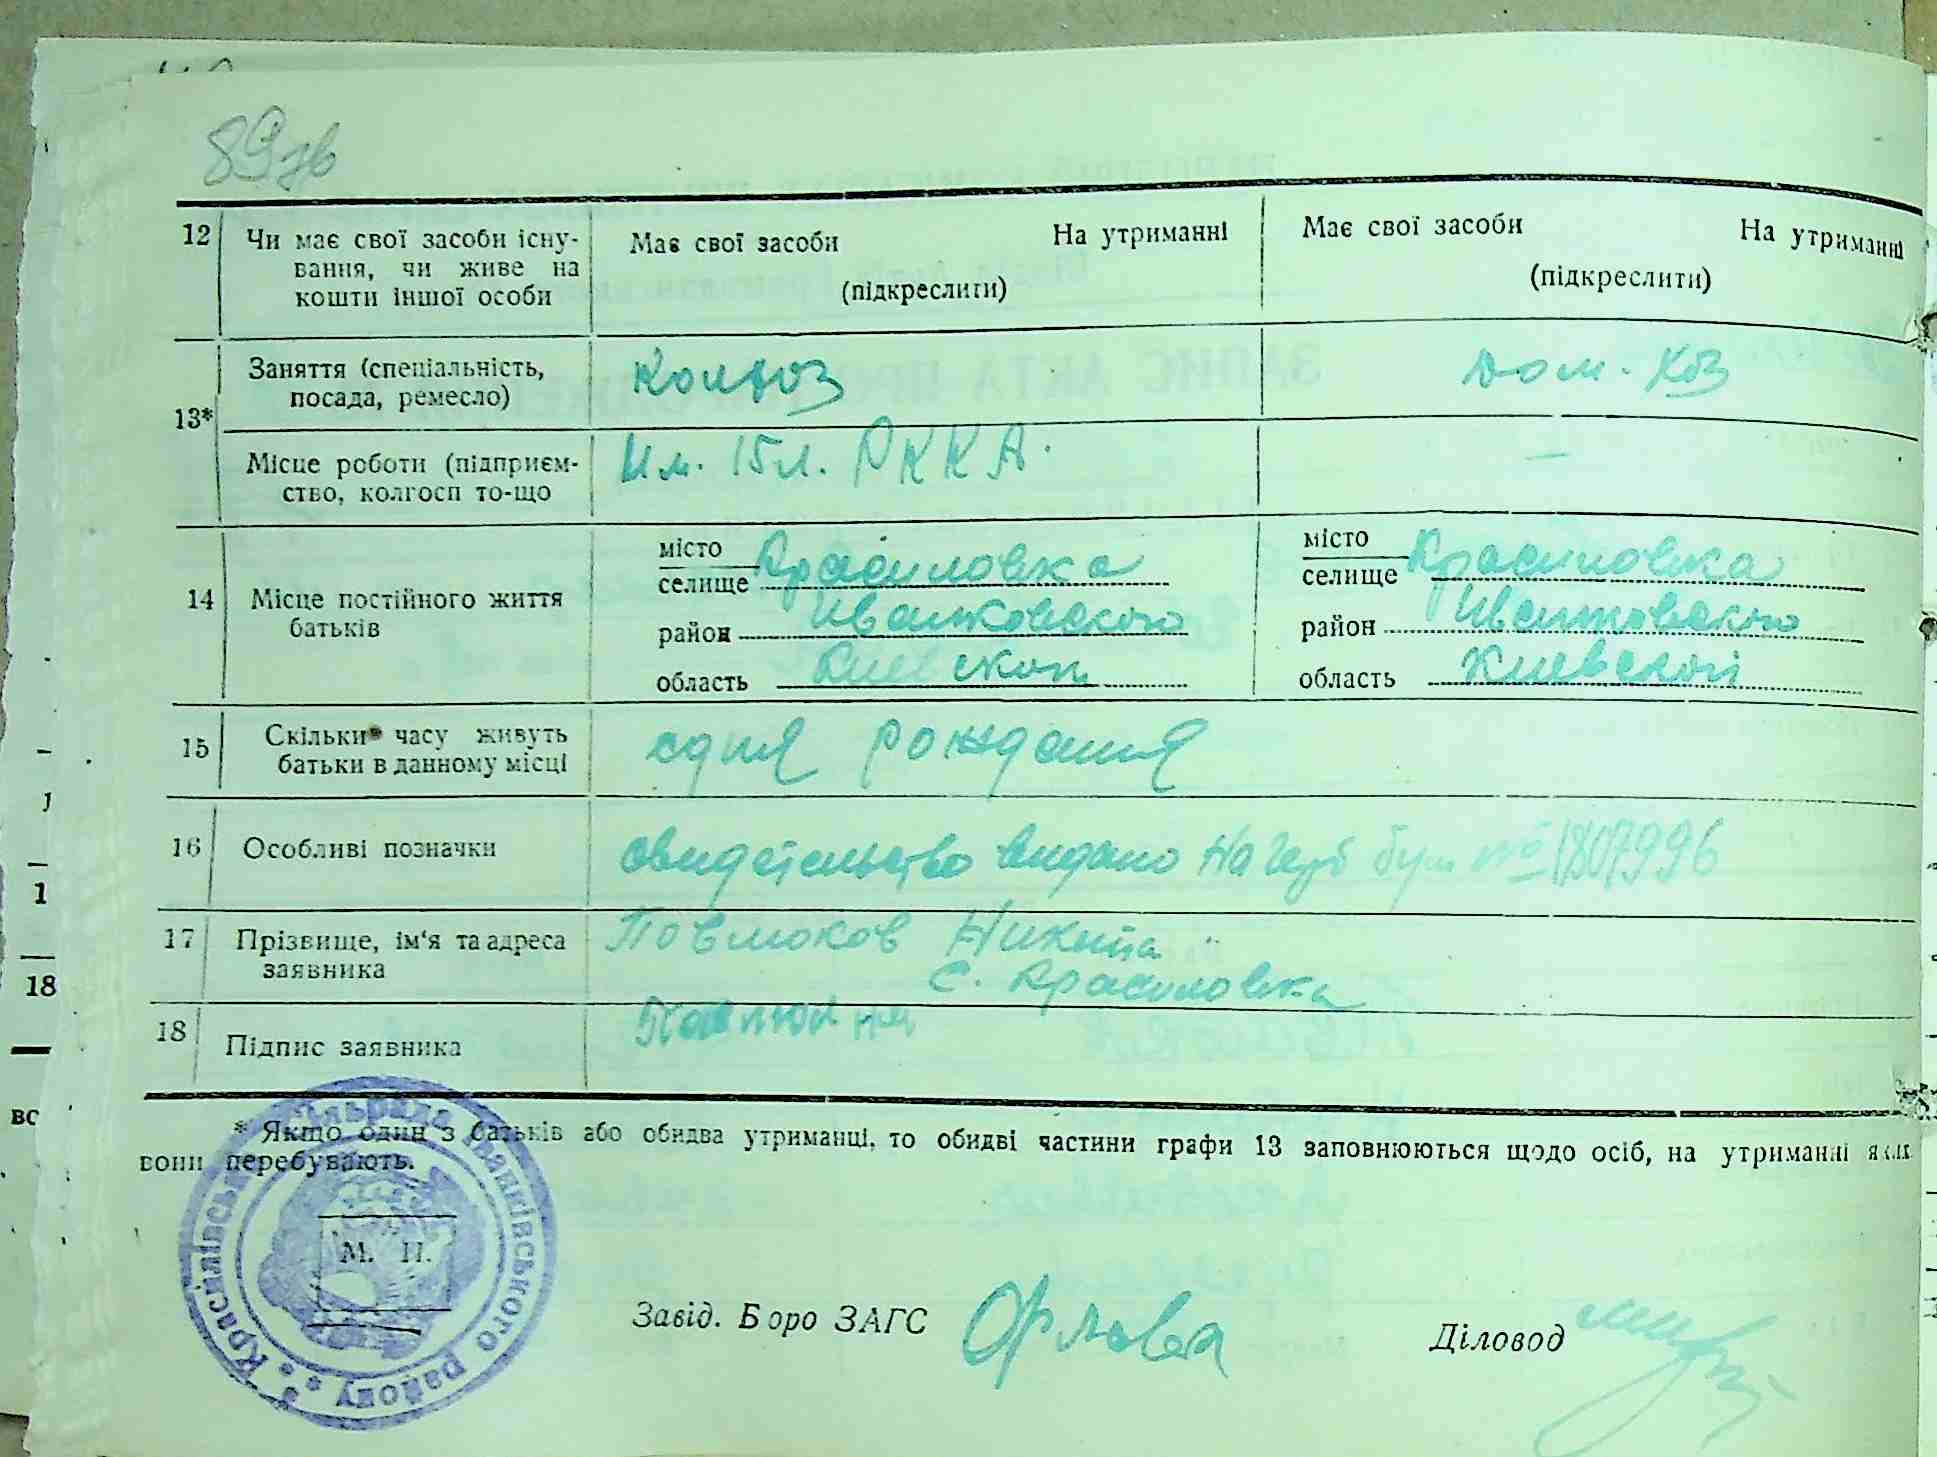 89 зв
12 Чи має свої засоби існу- Має свої засоби На утриманні Має свої засоби На утриманні
вання, чи живе на
кошти іншої особи (підкреслити) (підкреслити)
13* Заняття (спеціальність, Колхоз Дом. хоз
посада, ремесло)
Місце роботи (підприєм- Им. 15л. РККА. —
ство, колгосп то-що
14 Місце постійного життя місто Красиловка місто Красиловка
батьків селище селище
район Иванковского район Иванковского
область Киевской область Киевской
15 Скільки часу живуть с дня рождения
батьки в данному місці
16 Особливі позначки свидетельство видано На герб бум № 1807996
17 Прізвище, ім'я та адреса Повлюков Никита
заявника С. Красиловка
18 Підпис заявника
* Якщо один з батьків або обидва утриманці, то обидві частини графи 13 заповнюються щодо осіб, на утриманні яких
вони перебувають.
Красилівська сільрада Іванківського району
М. П.
Завід. Бюро ЗАГС Орлова Діловод
18
1
18
вс